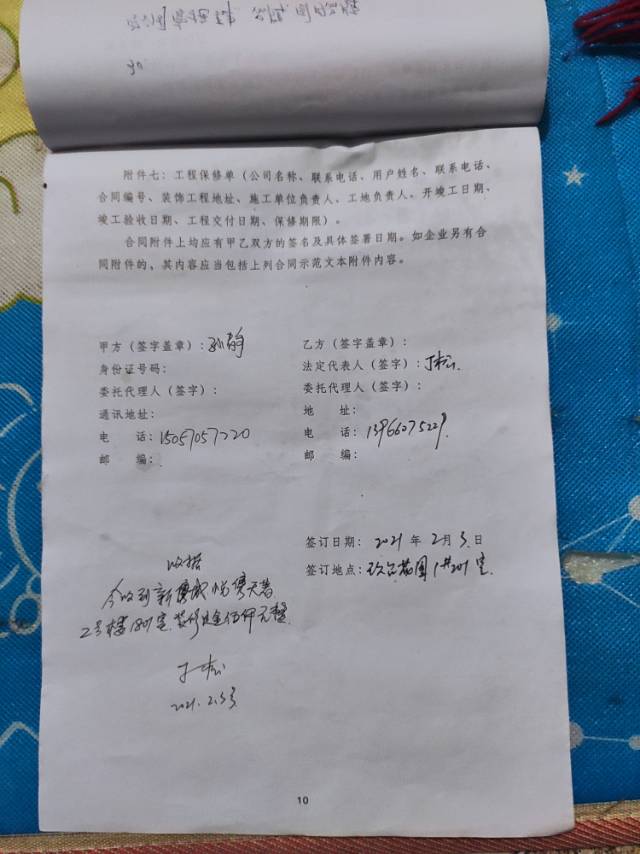 附件七：工程保修单（公司名称、联系电话、用户姓名、联系电话、
合同编号、装饰工程地址、施工单位负责人、工地负责人。开竣工日期、
竣工验收日期、工程交付日期、保修期限）。
合同附件上均应有甲乙双方的签名及具体签署日期。如企业另有合
同附件的、其内容应当包括上列合同示范文本附件内容。
甲方（签字盖章）：孙静
身份证号码：
委托代理人（签字）：
通讯地址：
电 话：15057057220
邮 编：
乙方（签字盖章）：
法定代表人（签字）：丁松
委托代理人（签字）：
地 址：
电 话：13966075229
邮 编：
签订日期：2021 年 2 月 3 日
签订地点：花园 1# 201 室
收据
今收到新 悦 天著
2号楼1801室装修 金伍仟元整
丁松
2021.2.3号
10